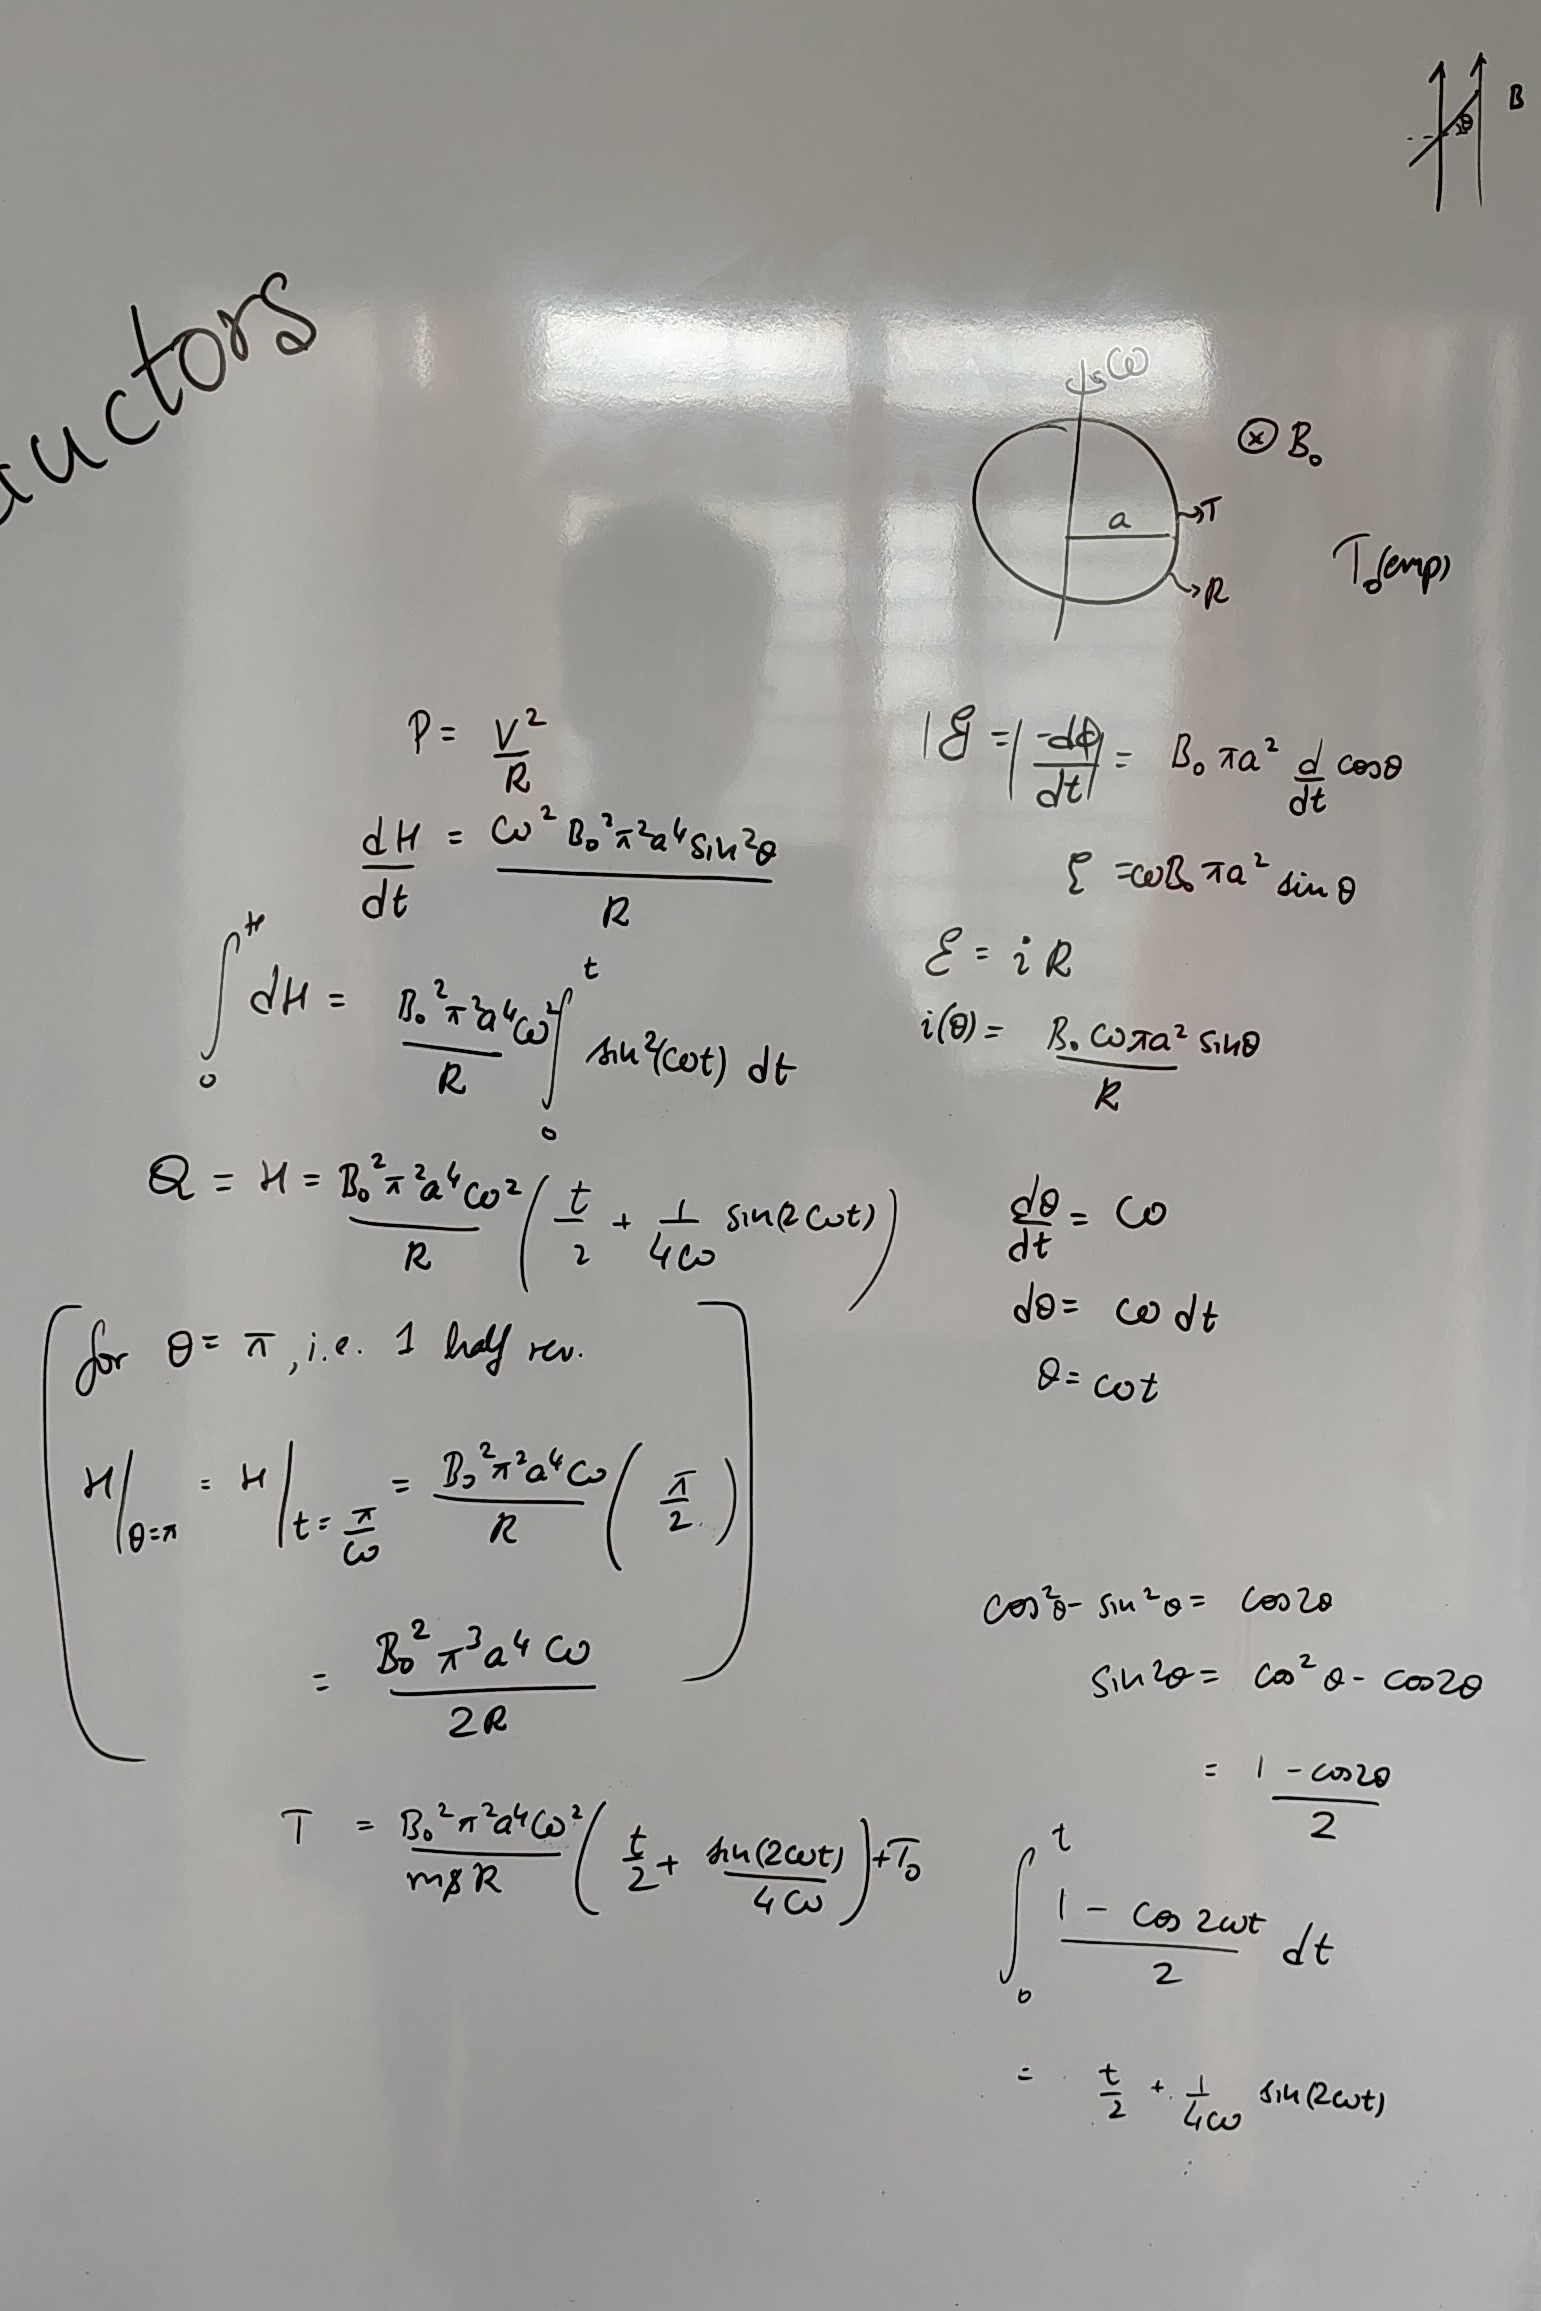 B
θ
ω
⊗ B₀
a
T
R
T₀(emp)
P = V²/R
dH/dt = ω² B₀² π² a⁴ sin²θ / R
∫₀ᴴ dH = B₀² π² a⁴ ω² / R ∫₀ᵗ sin²(ωt) dt
Q = H = B₀² π² a⁴ ω² / R ( t/2 + 1/4ω sin(2ωt) )
for θ = π, i.e. 1 half rev.
H|θ=π = H|t=π/ω = B₀² π² a⁴ ω / R ( π/2 )
= B₀² π³ a⁴ ω / 2R
T = B₀² π² a⁴ ω² / msR ( t/2 + sin(2ωt)/4ω ) + T₀
|ℰ| = |-dϕ/dt| = B₀ πa² d/dt cosθ
ξ = ωB₀ πa² sin θ
ℰ = i R
i(θ) = B₀ ωπa² sinθ / R
dθ/dt = ω
dθ = ω dt
θ = ωt
cos²θ - sin²θ = cos2θ
sin2θ = cos²θ - cos2θ
= 1 - cos2θ / 2
∫₀ᵗ 1 - cos 2ωt / 2 dt
= t/2 + 1/4ω sin(2ωt)